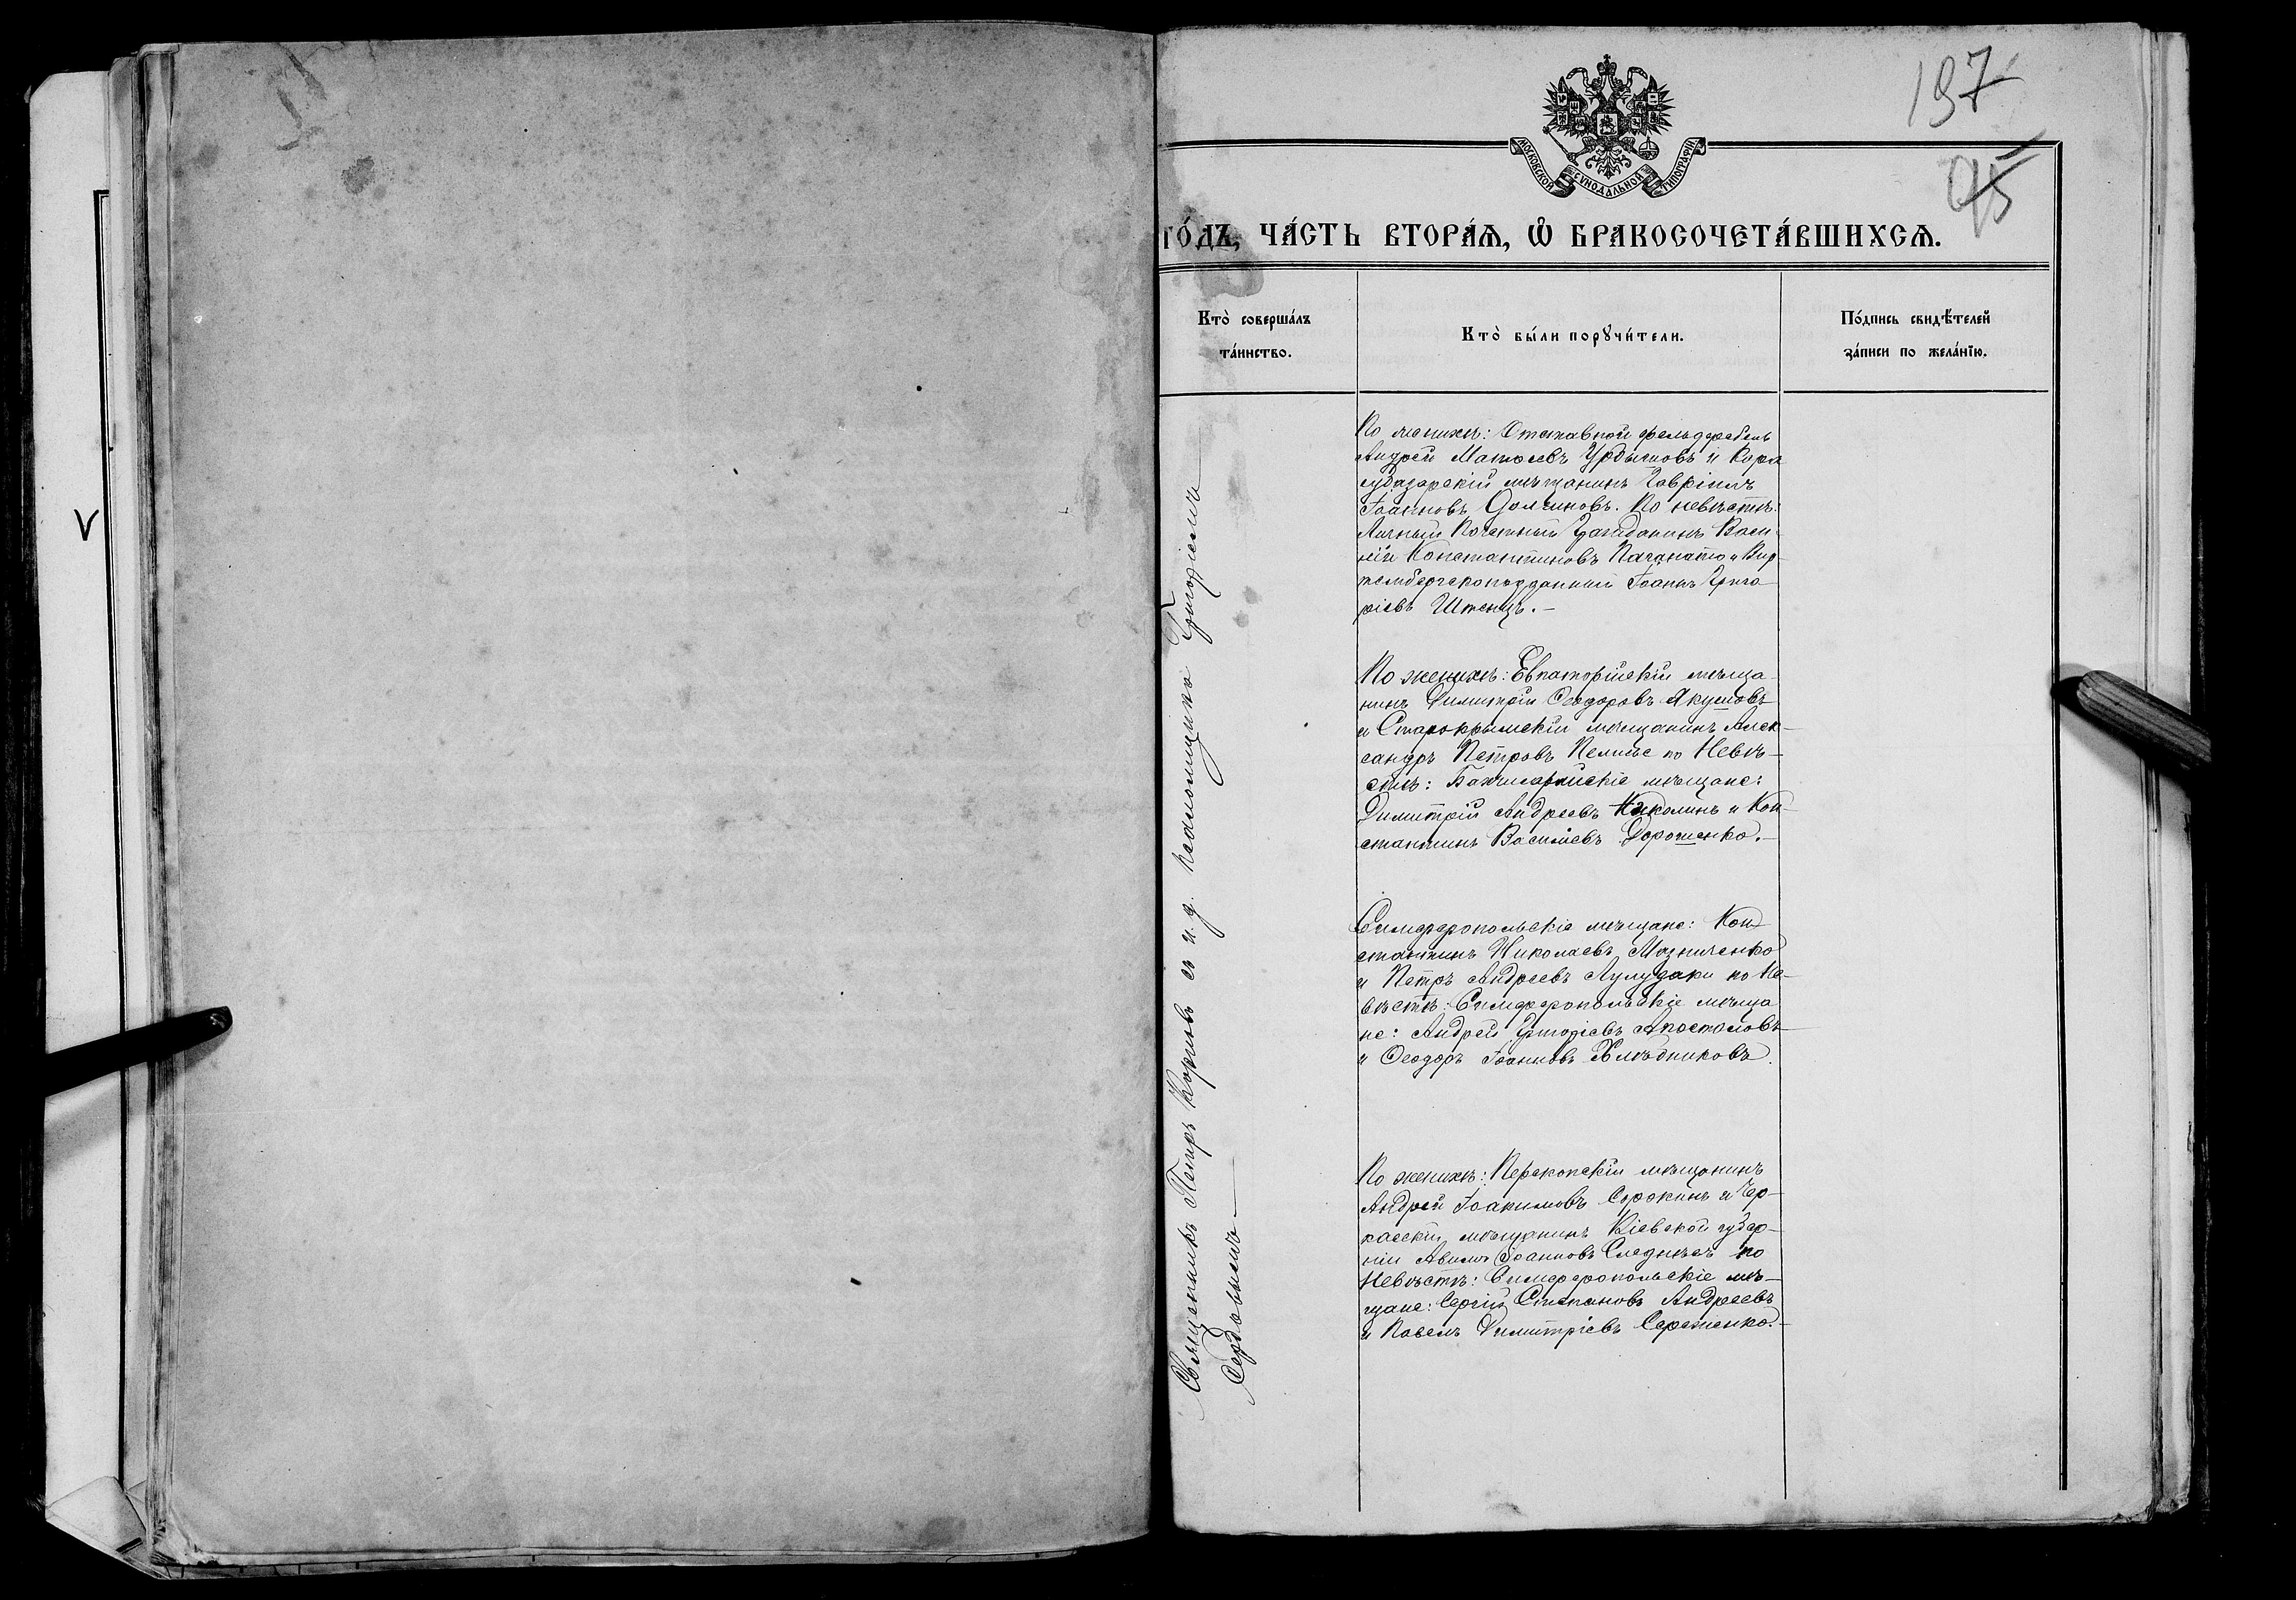 197
95
МОСКОВСКОЙ СѴНОДАЛЬНОЙ ТИПОГРАФІИ
ГО́ДЪ, ЧА́СТЬ ВТОРА́Ѧ, Ѽ БРАКОСОЧЕТА́ВШИХСѦ.
Кто̀ соверша́лъ
та́инство.
Кто̀ бы́ли порꙋчи́тели.
По́дпись свидѣ́телей
за́писи по жела́нїю.
Священникъ Петръ Коріновъ съ и. д. псаломщика Григоріемъ
Сердовымъ
По женихѣ: Отставной фельдфебель
Андрей Матѳеевъ и Кара
субазарскій мѣщанинъ Гавріилъ
Іоанновъ Долгиновъ. По невѣстѣ:
Личный Почетный Гражданинъ Васи
лій Константиновъ и Вир
тембергскоподданный Іоаннъ Григо
ріевъ Штенцъ.–
По женихѣ: Евпаторійскій мѣща
нинъ Димитрій Ѳеодоровъ Якушовъ
и Старокрымскій мѣщанинъ Алек–
сандръ Петровъ по Невѣ–
стѣ: Бахчисарайскіе мѣщане:
Димитрій Андреевъ Николинъ и Кон
стантинъ Василіевъ Дорошенко.–
Симферопольскіе мѣщане: Кон
стантинъ Николаевъ Мазниченко
и Петръ Андреевъ Лулудаки по Не–
вѣстѣ: Симферопольскіе мѣща
не: Андрей Григоріевъ Апостоловъ
и Ѳеодоръ Іоанновъ Хлѣбниковъ.
По женихѣ: Перекопскій мѣщанинъ
Андрей Іоакимовъ Сорокинъ и Чер–
касскій мѣщанинъ Кіевской губер–
ніи Іоанновъ по
Невѣстѣ: Симферопольскіе мѣ–
щане: Сергій Стефановъ Андреевъ
и Павелъ Димитріевъ Сереженко.–